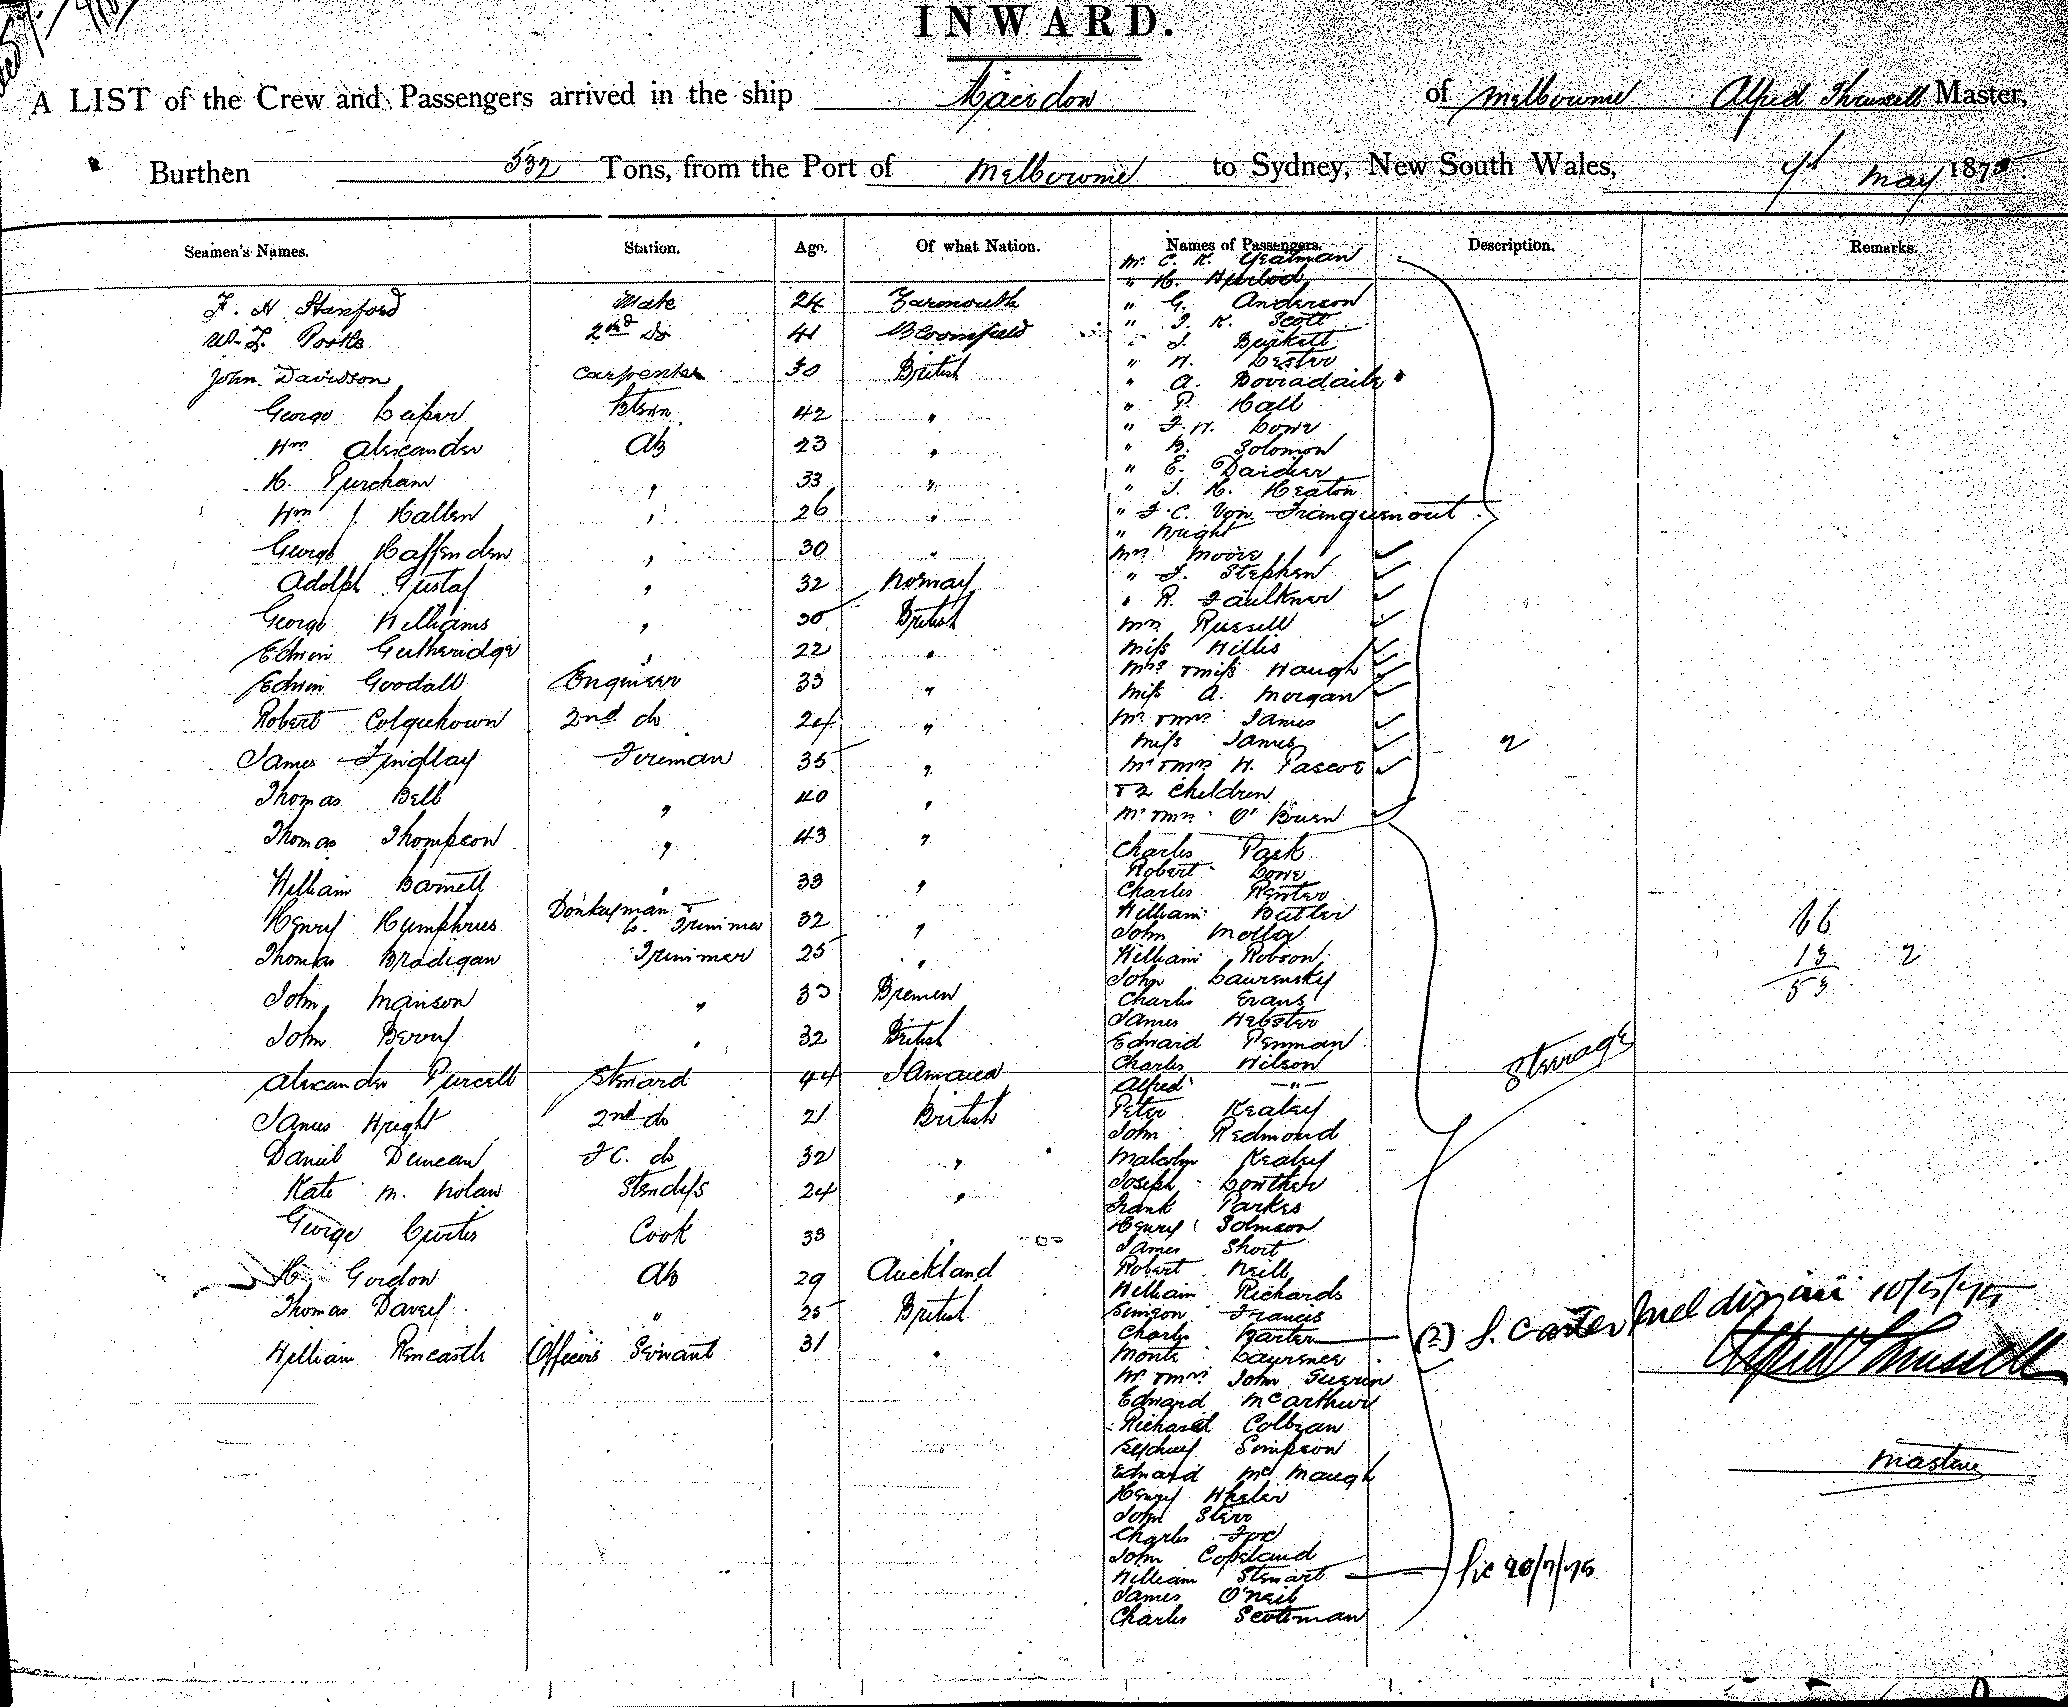 INWARD.
A LIST of the Crew and Passengers arrived in the ship Macedon of Melbourne Alfred Thrussell Master,
Burthen 532 Tons, from the Port of Melbourne to Sydney, New South Wales, 9th May 1875
Seamen's Names. Station. Age. Of what Nation. Names of Passengers. Description. Remarks.
Mr C. R. Yeatman
" G. Anderson
F. H. Stanford Mate 24 Yarmouth
" J. K. Scott
2nd Do 41 Bloomfield
" J. Burkett
" H. Lester
John Davidson Carpenter 30 British
" A. Borradaile
George Leiper 42 "
" P. Hall
" J. H. Lowe
Wm Alexander AB 23 "
" B. Solomon
" E.
H. Purcham " 33 "
" J. H. Heaton
Wm J. Hallen " 26 "
" F. C. Von
" Wright
George Haffenden " 30 "
Mrs Moore
" J. Stephen
Adolph Gustaf " 32 Norway
" R. Faulkner
George Williams " 30 British
Mrs Russell
Edwin Gutheridge " 22 "
Miss Willis
Mrs & Miss Waugh
Edwin Goodall Engineer 33 "
Miss A. Morgan
Robert Colquhoun 2nd do 24 "
Mr & Mrs James
Miss James
James Findlay Fireman 35 "
Mr & Mrs H. Pascoe
& 2 children
Thomas Bell " 40 "
Mr & Mrs O' Burn
Thomas Thompson " 43 "
Charles Park
Robert Lowe
William Barnett " 33 "
Charles
William Butler
Henry Humphries Donkeyman & L. Trimmer 32 "
John
66
Thomas Bradigan Trimmer 25 "
William Robson
13 2
John
53
John Manson " 33 Bremen
Charles Evans
James Webster
John Berry " 32 British
Edward Penman
Charles Wilson
Steerage
Alexander Purcell Steward 44 Jamaica
Alfred "
James Wright 2nd do 21 British
Peter Kealey
John Redmond
Daniel Duncan F C. do 32 "
Malcolm Kealey
Joseph Lowther
Kate M. Nolan Stewdess 24 "
Frank Parkes
Henry Johnson
George Curtis Cook 33 "
James Short
Robert Neill
H. Gordon AB 29 Auckland
William Richards
Thomas Davey " 25 British
Simeon Francis
Charles Carter (2) S. Carter
William Officers Servant 31 "
Alfred Thrussell
Monte Laurence
Mr & Mrs John Guerin
Edward McArthur
Richard
Sydney Simpson
Master
Edward
Henry Wheler
John Starr
Charles Fox
John Copeland
William Stewart 20/7/75
James O'Neil
Charles Scotsman